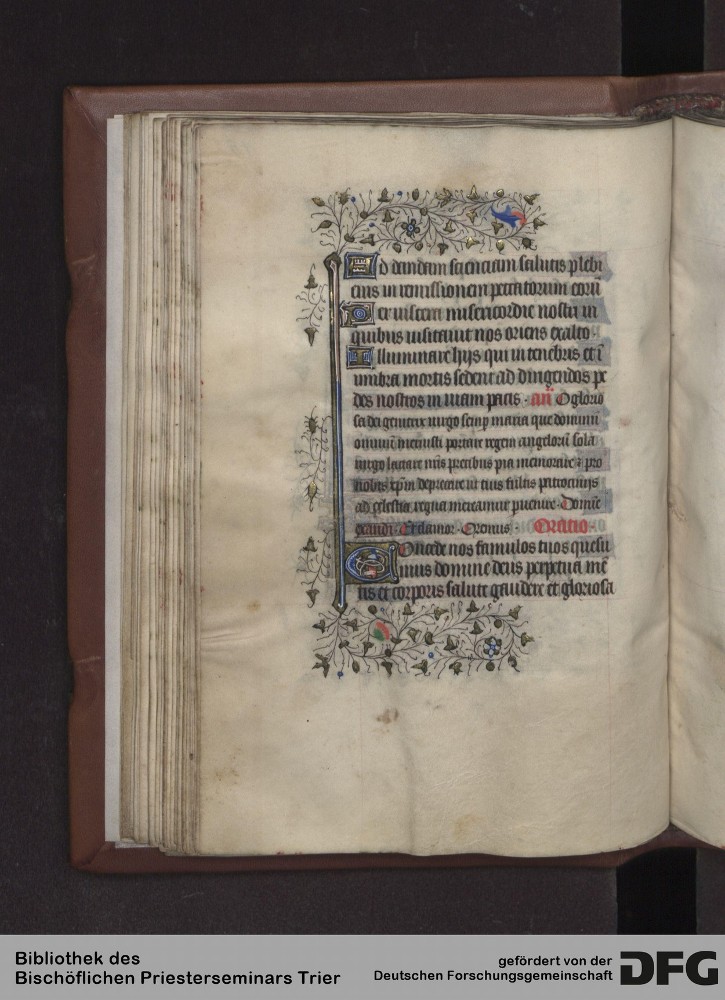 Ad dandam scienciam salutis plebi
eius in remissionem peccatorum eorū
Per viscera misericordie nostri in
quibus visitavit nos oriens exalto
Illuminare hijs qui in tenebris et ī
umbra mortis sedent ad dirigendos pe
des nostros in viam pacis an̄ O glorio
sa dei genitrix virgo semp maria que dominū
omniū meruisti portare regem angelorū sola
virgo lactare nr̄is precibus pia memorare ⁊ pro
nobis xp̄m deprecare ut tuis fulti patrocinijs
ad celestia regna mereamur pvenire Domīe
exaudi Et clamor Oremus Oratio
Concede nos famulos tuos quesu
mus domine deus perpetua mē
tis et corporis salute gaudere et gloriosa
Bibliothek des
Bischöflichen Priesterseminars Trier
gefördert von der
Deutschen Forschungsgemeinschaft
DFG